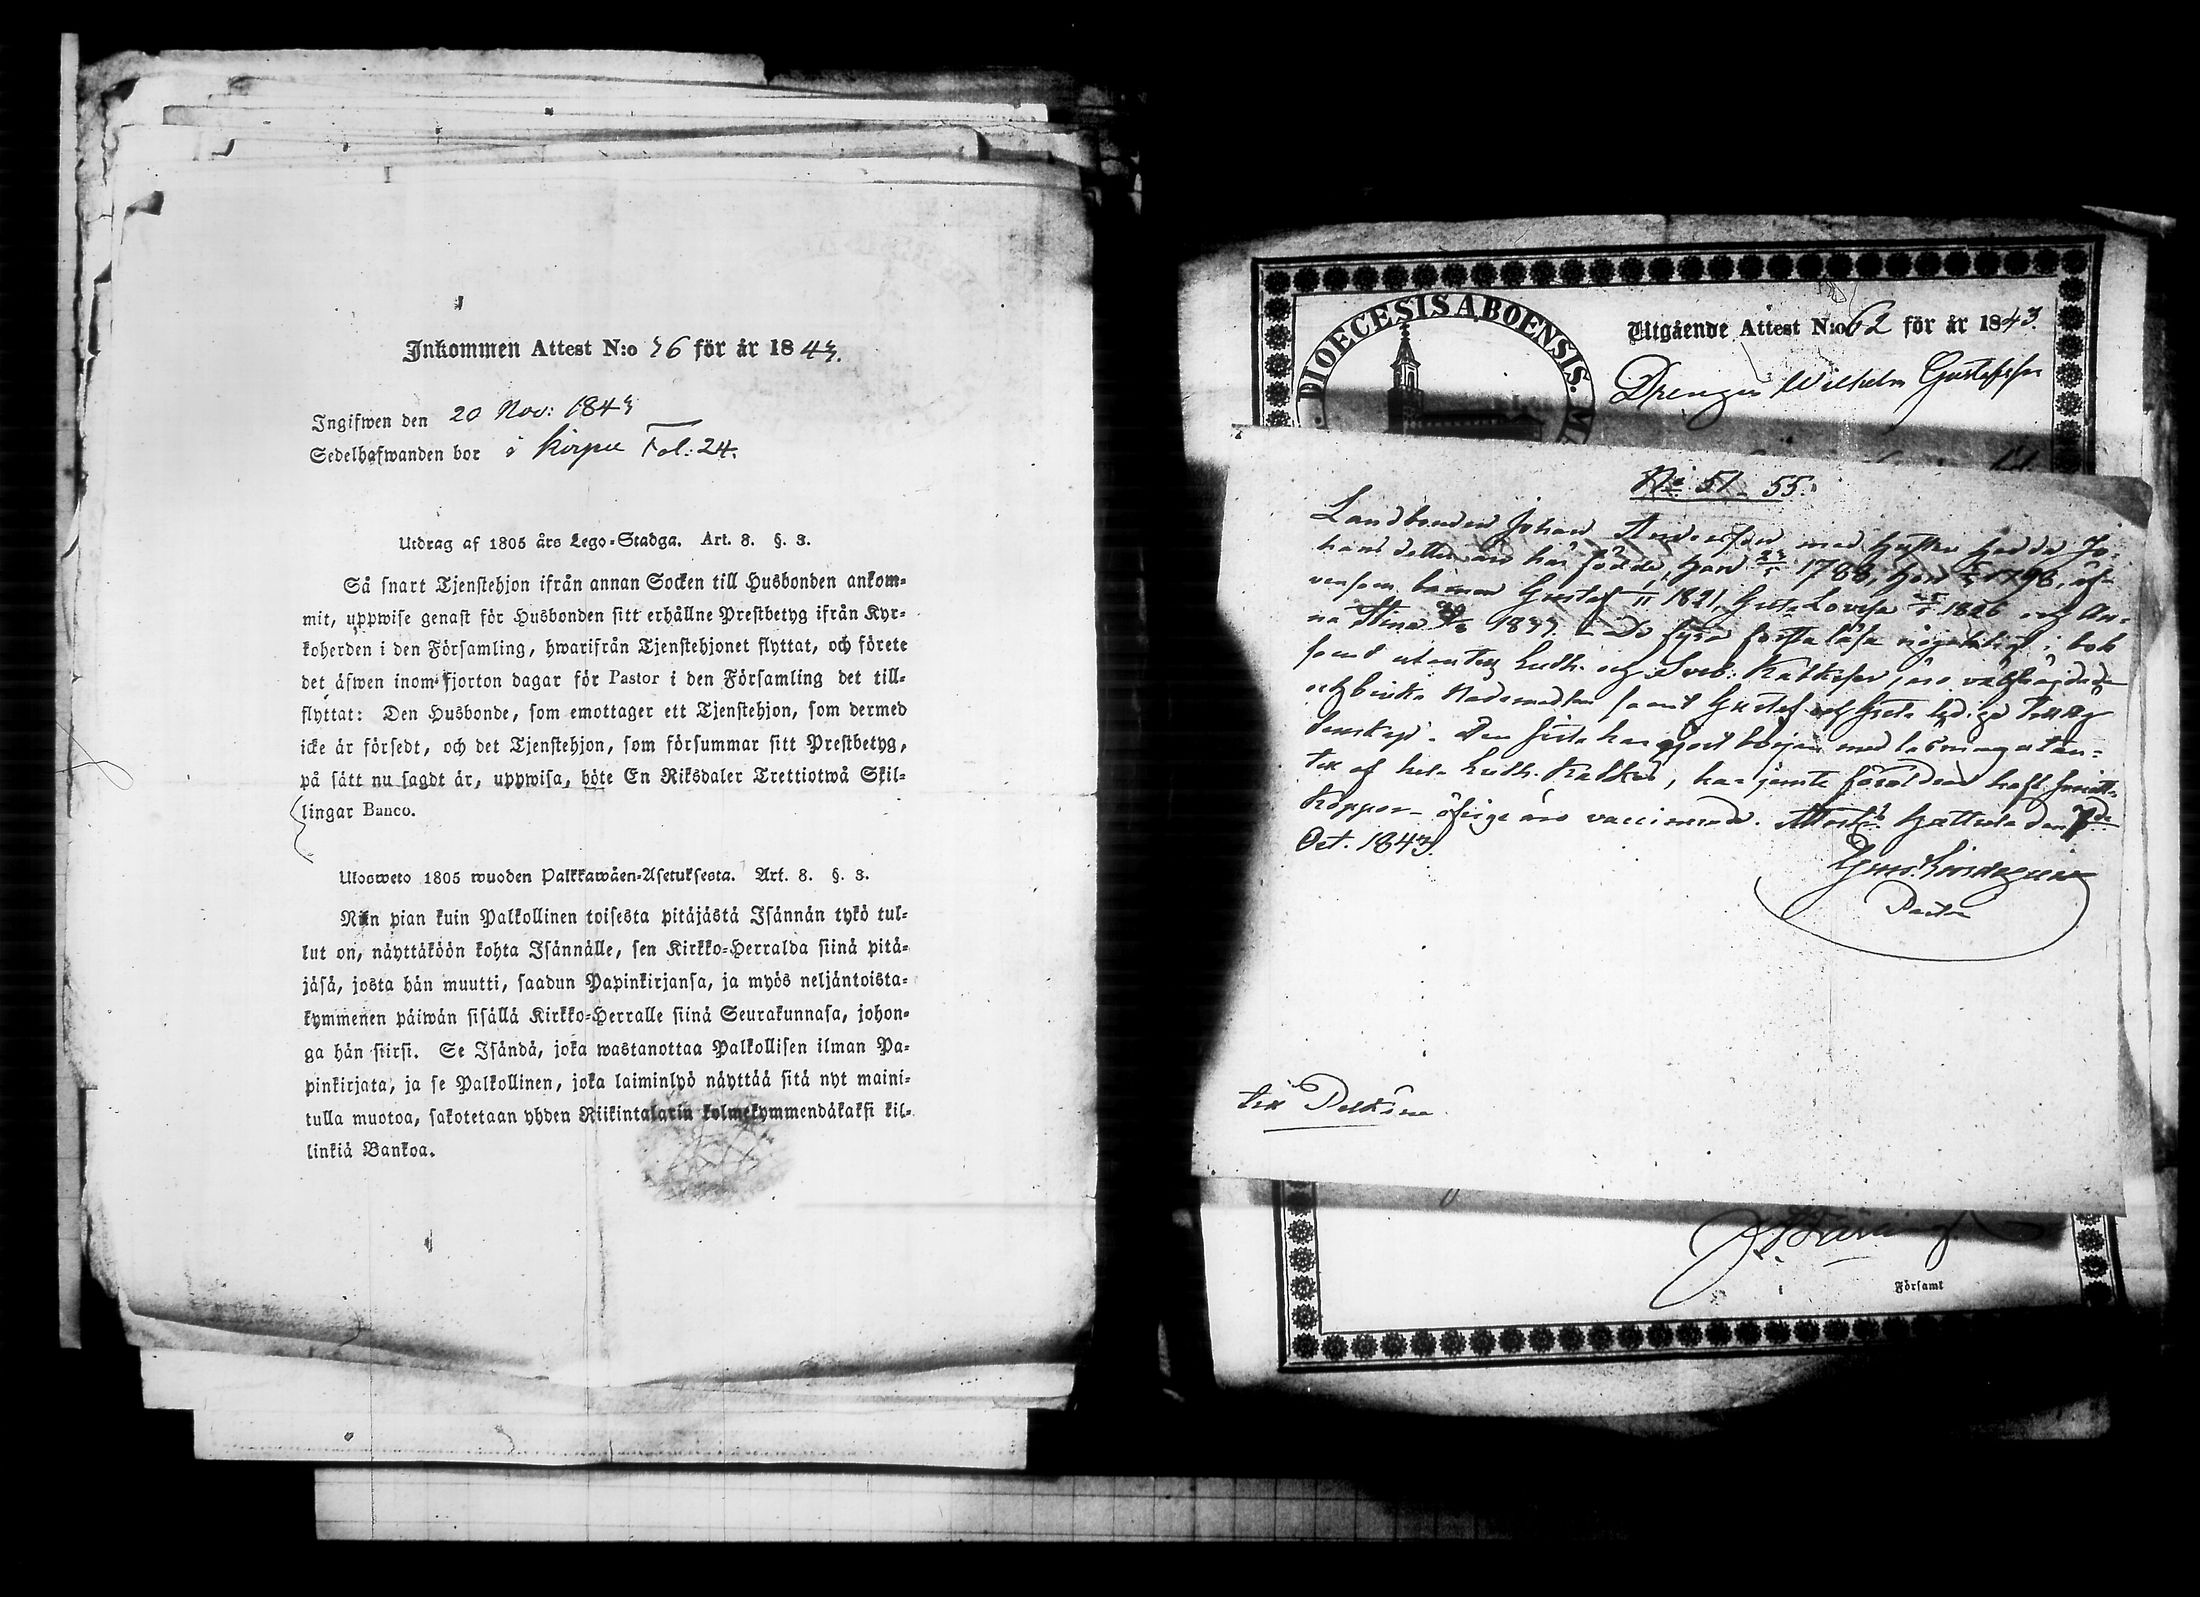 Inkommen Attest N:o 36 för år 1843.
Ingifwen den 20 Nov: 1843
Sedelhafwanden bor i Körpu Fol: 24.
Utdrag af 1805 års Lego-Stadga. Art. 8. §. 3.
Så snart Tjenstehjon ifrån annan Socken till Husbonden ankom-
mit, uppwise genast för Husbonden sitt erhållne Prestbetyg ifrån Kyr-
koherden i den Församling, hwarifrån Tjenstehjonet flyttat, och förete
det äfwen inom fjorton dagar för Pastor i den Församling det till-
flyttat: Den Husbonde, som emottager ett Tjenstehjon, som dermed
icke är försedt, och det Tjenstehjon, som försummar sitt Prestbetyg,
på sätt nu sagdt är, uppwisa, böte En Riksdaler Trettiotwå Skil-
lingar Banco.
Ulosweto 1805 wuoden Palkkawäen-Asetuksesta. Art. 8. §. 3.
Niin pian kuin Palkollinen toisesta pitäjästä Isännän tykö tul-
lut on, näyttäköön kohta Isännälle, sen Kirkko-Herralda siinä pitä-
jäsä, josta hän muutti, saadun Papinkirjansa, ja myös neljäntoista-
kymmenen päiwän sisällä Kirkko-Herralle siinä Seurakunnasa, johon-
ga hän siirsi. Se Isändä, joka wastanottaa Palkollisen ilman Pa-
pinkirjata, ja se Palkollinen, joka laiminlyö näyttää sitä nyt maini-
tulla muotoa, sakotetaan yhden Riikintalarin kolmekymmendäkaksi kil-
linkiä Bankoa.
DIOECESIS ABOENSIS.
Utgående Attest N:o 62 för år 1843.
Drengen Wilhelm Gustafsson
No 51-55.
Landbonden Johan Andersson med hustru Hedda Jo-
hans dotter äro här födde, Han 1788, Hon 1798, äf-
vensom barnen Gustaf 1821, Greta Lovisa 1826 och An-
na Stina 1837. De fyra första läsa i bok
samt utantill Luth. och Sveb. Katkeser, äro
och bruka Nademedlen samt Gustaf och Greta lediga till
. Den sista har gjort början med läsning utan-
till af hela Luth. Katkes, har jemte föräldrarne haft
koppor - öfrige äro vaccinerade. Attest. Hattula den 7de
Oct. 1843.
Pastor
till Pelkäne
i Församl